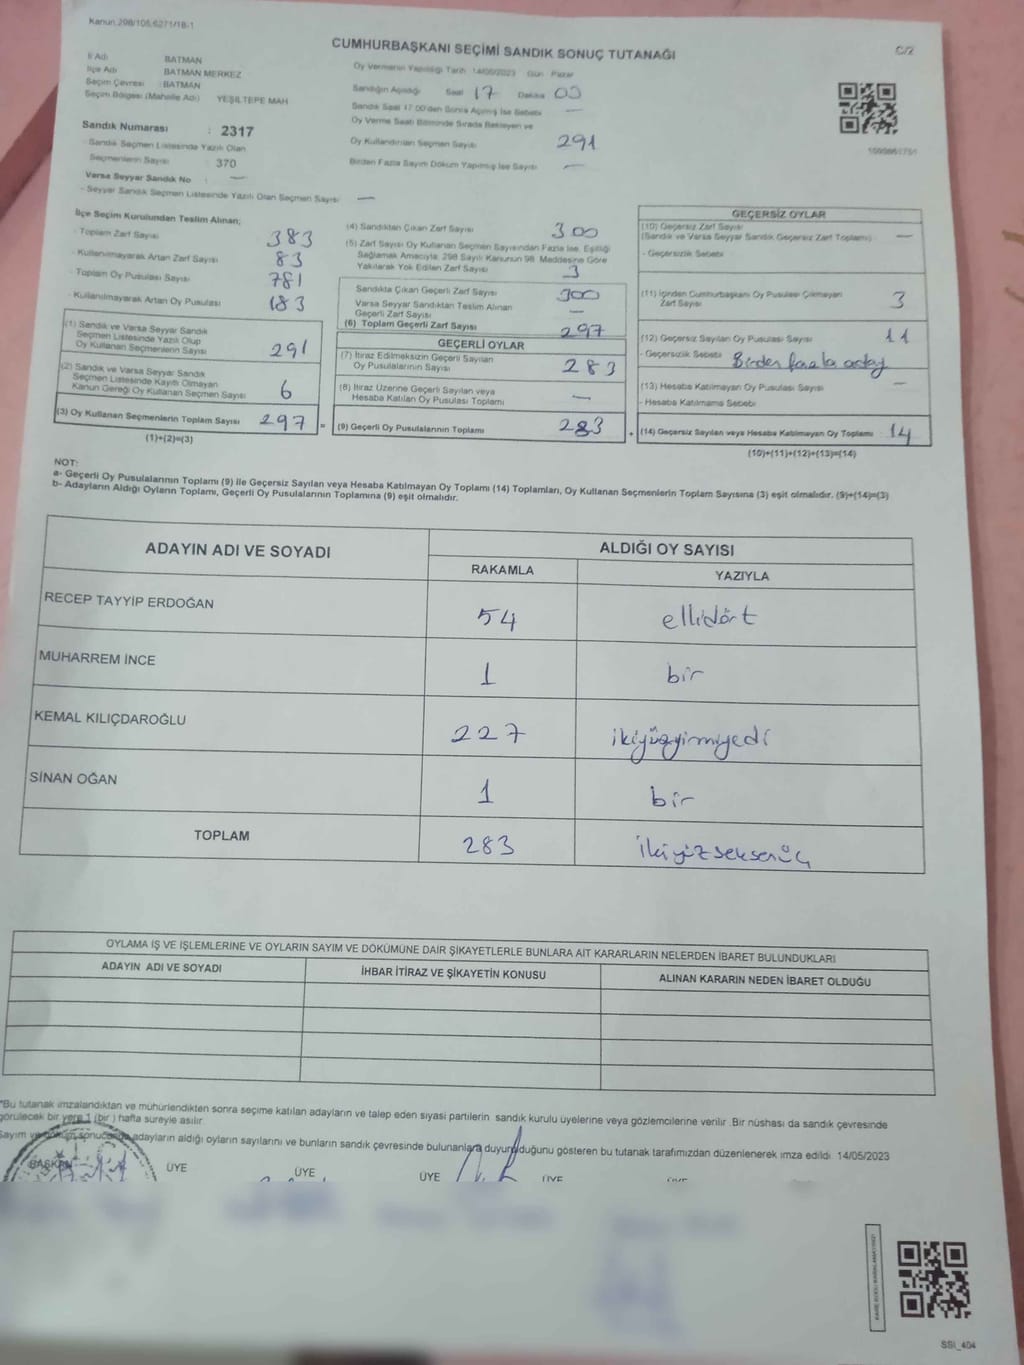 Kanun.298/105,6271/18-1
CUMHURBAŞKANI SEÇİMİ SANDIK SONUÇ TUTANAĞI
C/2
İl Adı BATMAN
İlçe Adı BATMAN MERKEZ
Seçim Çevresi : BATMAN
Seçim Bölgesi (Mahalle Adı) YEŞİLTEPE MAH
Sandık Numarası : 2317
- Sandık Seçmen Listesinde Yazılı Olan
Seçmenlerin Sayısı 370
Varsa Seyyar Sandık No : —
- Seyyar Sandık Seçmen Listesinde Yazılı Olan Seçmen Sayısı —
Oy Vermenin Yapıldığı Tarih 14/05/2023 Gün Pazar
Sandığın Açıldığı Saat 17 Dakika 05
Sandık Saat 17.00'den Sonra Açılmış İse Sebebi —
Oy Verme Saati Bitiminde Sırada Bekleyen ve
Oy Kullandırılan Seçmen Sayısı 291
Birden Fazla Sayım Döküm Yapılmış İse Sayısı —
İlçe Seçim Kurulundan Teslim Alınan;
- Toplam Zarf Sayısı 383
- Kullanılmayarak Artan Zarf Sayısı 83
- Toplam Oy Pusulası Sayısı 781
- Kullanılmayarak Artan Oy Pusulası 183
(1) Sandık ve Varsa Seyyar Sandık
Seçmen Listesinde Yazılı Olup
Oy Kullanan Seçmenlerin Sayısı 291
(2) Sandık ve Varsa Seyyar Sandık
Seçmen Listesinde Kayıtlı Olmayan
Kanun Gereği Oy Kullanan Seçmen Sayısı 6
(3) Oy Kullanan Seçmenlerin Toplam Sayısı 297 =
(1)+(2)=(3)
(4) Sandıktan Çıkan Zarf Sayısı 300
(5) Zarf Sayısı Oy Kullanan Seçmen Sayısından Fazla İse, Eşitliği
Sağlamak Amacıyla; 298 Sayılı Kanunun 98. Maddesine Göre
Yakılarak Yok Edilen Zarf Sayısı 3
Sandıkta Çıkan Geçerli Zarf Sayısı 300
Varsa Seyyar Sandıktan Teslim Alınan
Geçerli Zarf Sayısı —
(6) Toplam Geçerli Zarf Sayısı 297
GEÇERLİ OYLAR
(7) İtiraz Edilmeksizin Geçerli Sayılan
Oy Pusulalarının Sayısı 283
(8) İtiraz Üzerine Geçerli Sayılan veya
Hesaba Katılan Oy Pusulası Toplamı —
(9) Geçerli Oy Pusulalarının Toplamı 283 +
GEÇERSİZ OYLAR
(10) Geçersiz Zarf Sayısı
(Sandık ve Varsa Seyyar Sandık Geçersiz Zarf Toplamı) —
- Geçersizlik Sebebi
(11) İçinden Cumhurbaşkanı Oy Pusulası Çıkmayan
Zarf Sayısı 3
(12) Geçersiz Sayılan Oy Pusulası Sayısı 11
- Geçersizlik Sebebi Birden fazla aday
(13) Hesaba Katılmayan Oy Pusulası Sayısı —
- Hesaba Katılmama Sebebi
(14) Geçersiz Sayılan veya Hesaba Katılmayan Oy Toplamı 14
(10)+(11)+(12)+(13)=(14)
NOT:
a- Geçerli Oy Pusulalarının Toplamı (9) ile Geçersiz Sayılan veya Hesaba Katılmayan Oy Toplamı (14) Toplamları, Oy Kullanan Seçmenlerin Toplam Sayısına (3) eşit olmalıdır. (9)+(14)=(3)
b- Adayların Aldığı Oyların Toplamı, Geçerli Oy Pusulalarının Toplamına (9) eşit olmalıdır.
ADAYIN ADI VE SOYADI
ALDIĞI OY SAYISI
RAKAMLA YAZIYLA
RECEP TAYYİP ERDOĞAN 54 ellidört
MUHARREM İNCE 1 bir
KEMAL KILIÇDAROĞLU 227 ikiyüzyirmiyedi
SİNAN OĞAN 1 bir
TOPLAM 283 ikiyüzseksenüç
OYLAMA İŞ VE İŞLEMLERİNE VE OYLARIN SAYIM VE DÖKÜMÜNE DAİR ŞİKAYETLERLE BUNLARA AİT KARARLARIN NELERDEN İBARET BULUNDUKLARI
ADAYIN ADI VE SOYADI İHBAR İTİRAZ VE ŞİKAYETİN KONUSU ALINAN KARARIN NEDEN İBARET OLDUĞU
*Bu tutanak imzalandıktan ve mühürlendikten sonra seçime katılan adayların ve talep eden siyasi partilerin sandık kurulu üyelerine veya gözlemcilerine verilir. Bir nüshası da sandık çevresinde
görülecek bir yere 1 (bir) hafta süreyle asılır.
Sayım ve döküm sonucunda adayların aldığı oyların sayılarını ve bunların sandık çevresinde bulunanlara duyurulduğunu gösteren bu tutanak tarafımızdan düzenlenerek imza edildi. 14/05/2023
BAŞKAN ÜYE ÜYE ÜYE ÜYE ÜYE
SSİ_404